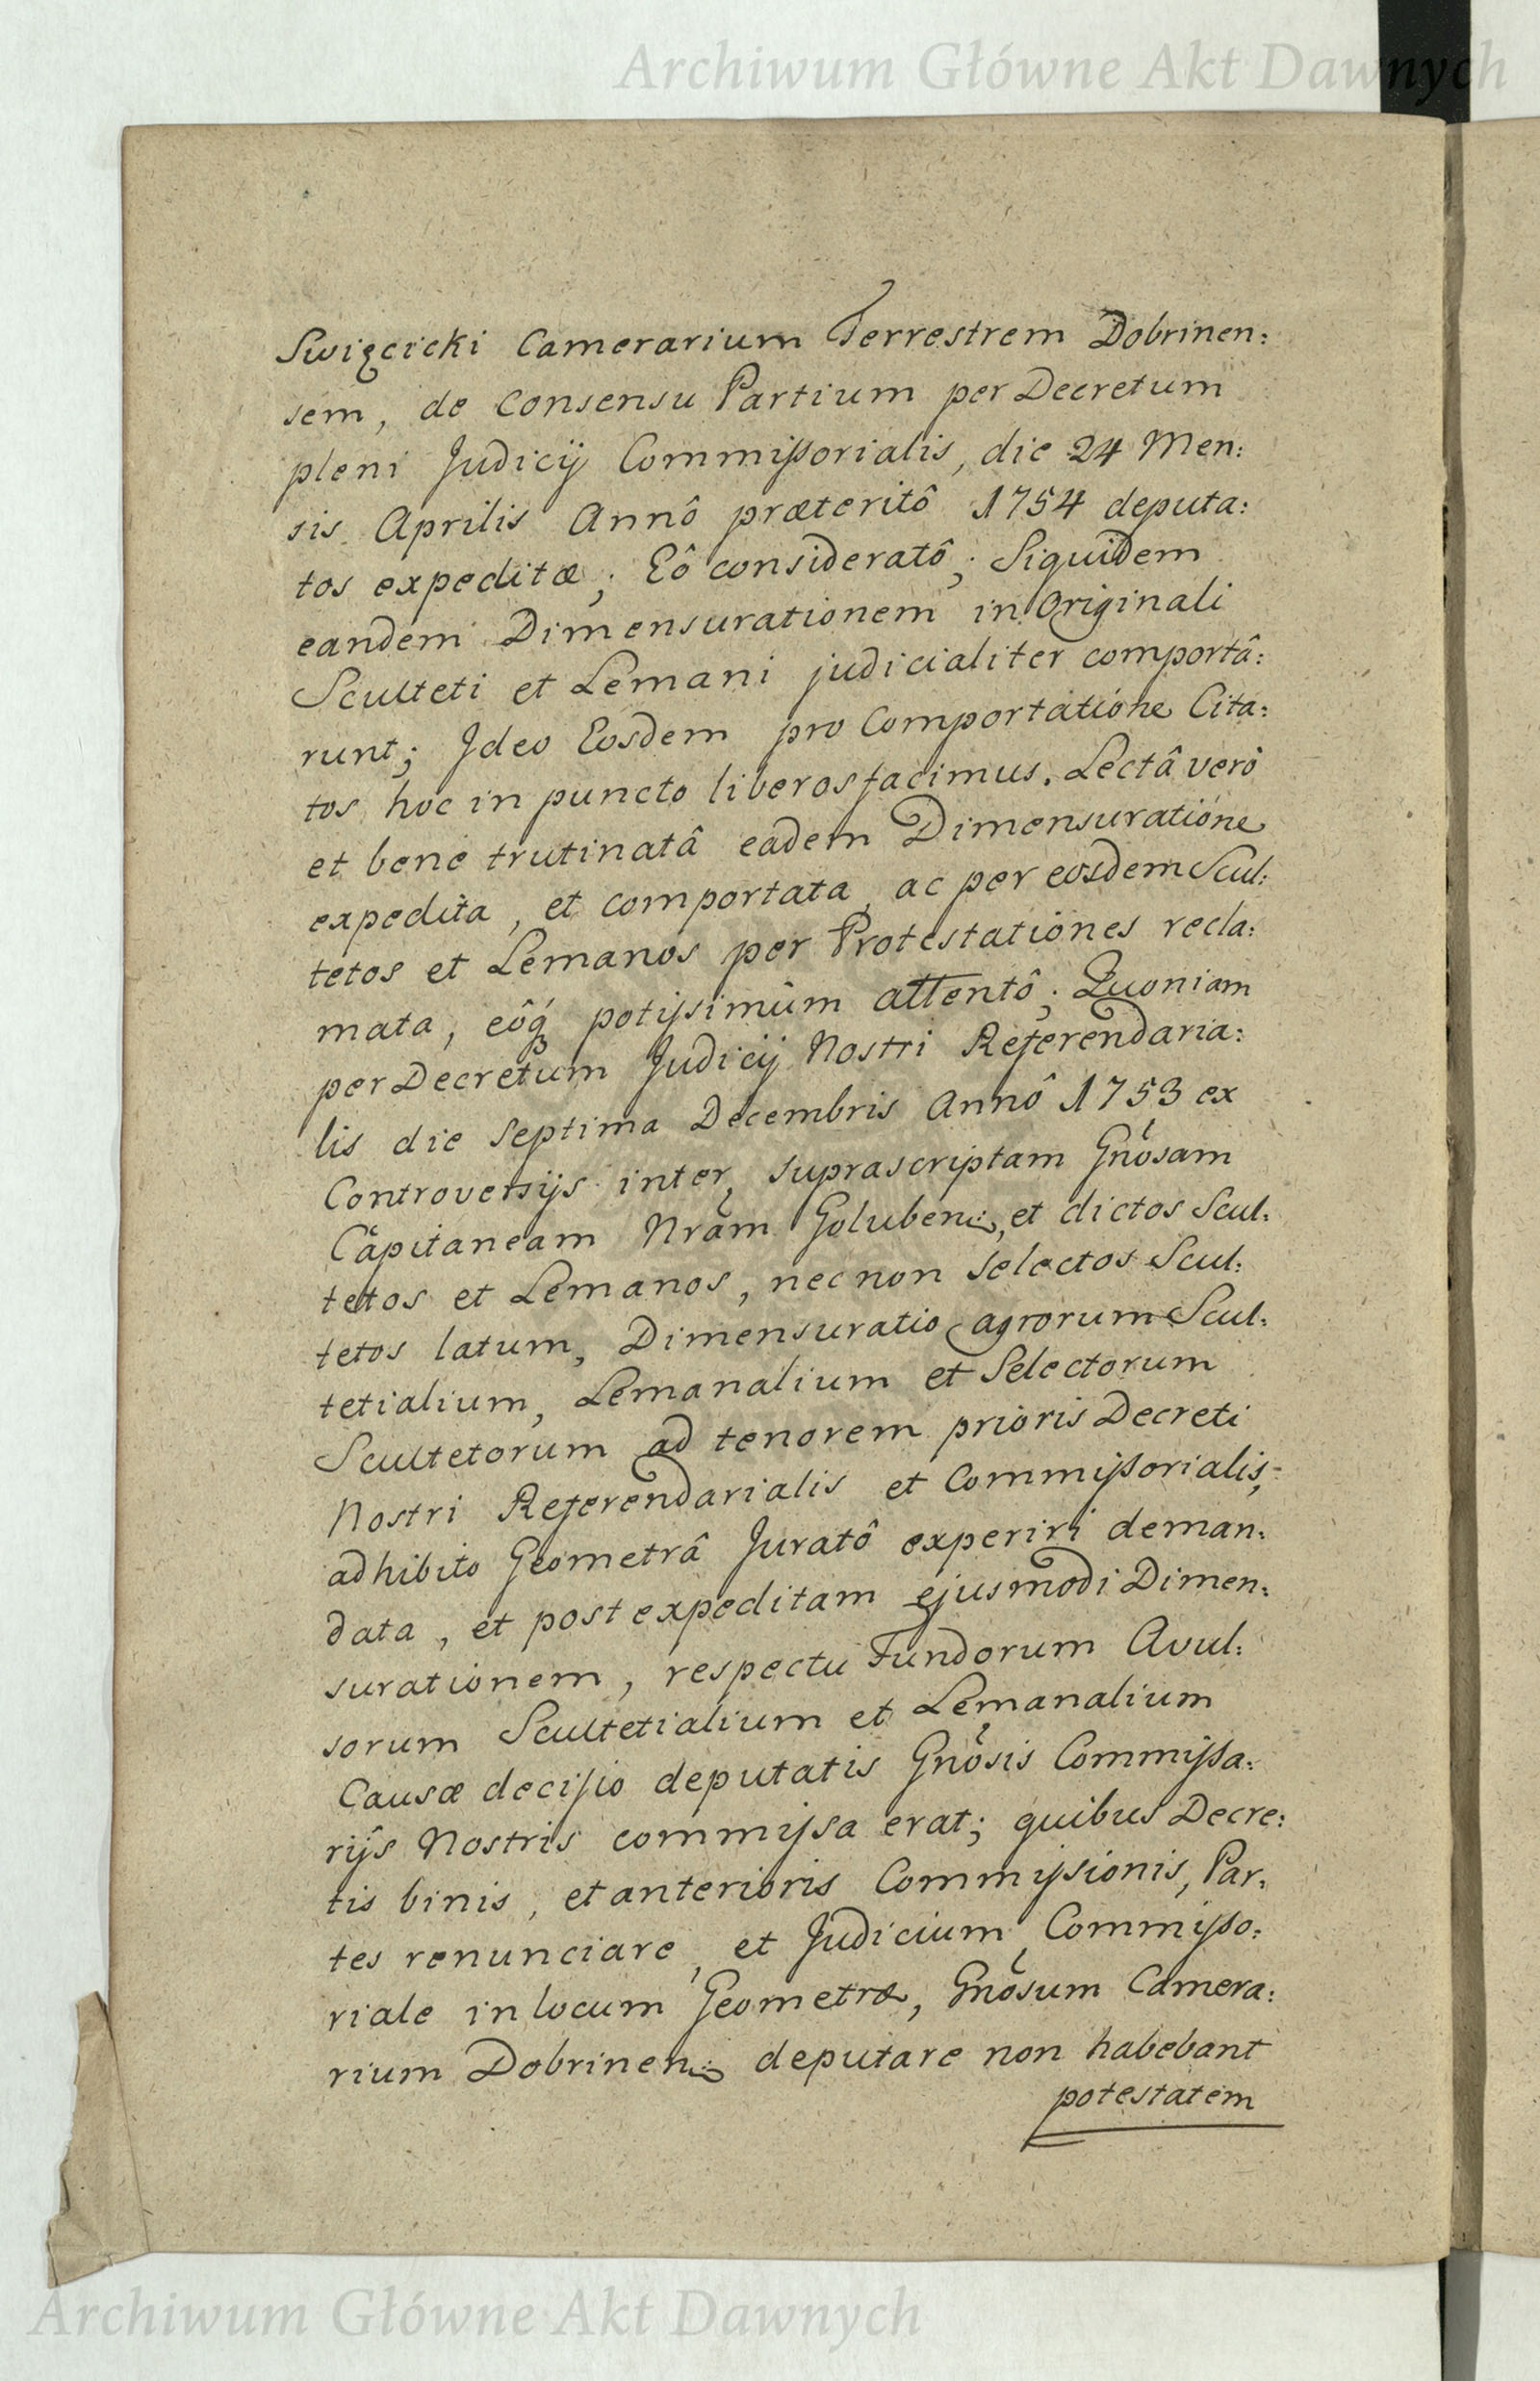 Archiwum Główne Akt Dawnych
Swięcicki Camerarium Terrestrem Dobrinen:
sem, de consensu Partium per Decretum
pleni Judicij Commissorialis, die 24 Men:
sis Aprilis Annô præteritô 1754 deputa:
tos expeditæ; Eô consideratô; Siquidem
eandem Dimensurationem in Originali
Sculteti et Lemani judicialiter comportâ:
runt; Ideo Eosdem pro Comportatione Cita:
tos hoc in puncto liberos facimus. Lectâ verò
et bene trutinatâ eadem Dimensuratione
expedita, et comportata, ac per eosdem Scul:
tetos et Lemanos per Protestationes recla:
mata, eôq́ potissimùm attentô; Quoniam
per Decretum Judicij Nostri Referendaria:
lis die septima Decembris Annô 1753 ex
Controversijs inter suprascriptam Gnôsam
Capitaneam Nrãm Goluben:, et dictos Scul:
tetos et Lemanos, nec non selectos Scul:
tetos latum, Dimensuratio agrorum Scul:
tetialium, Lemanalium et Selectorum
Scultetorum ad tenorem prioris Decreti
Nostri Referendarialis et Commissorialis,
adhibito Geometrâ Juratô experiri deman:
data, et post expeditam ejusmodi Dimen:
surationem, respectu Fundorum Avul:
sorum Scultetialium et Lemanalium
Causæ decisio deputatis Gnôsis Commissa:
rijs Nostris commissa erat; quibus Decre:
tis binis, et anterioris Commissionis, Par:
tes renunciare, et Judicium Commisso:
riale in locum Geometræ, Gnôsum Camera:
rium Dobrinen: deputare non habebant
potestatem
Archiwum Główne Akt Dawnych